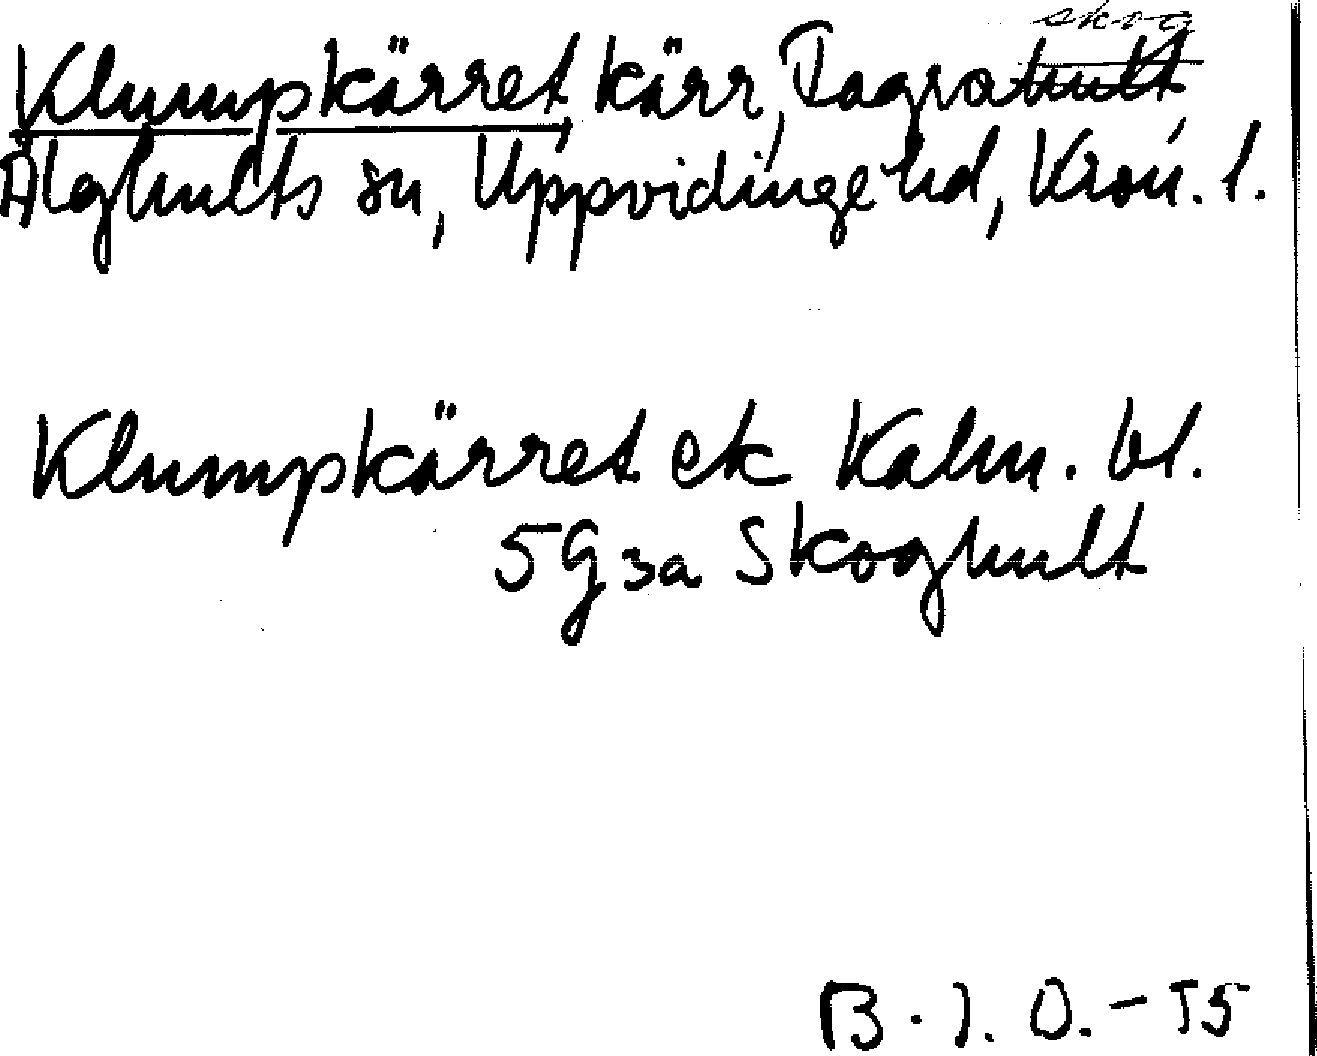 skog
Klumpkärret kärr, Tagrahult
Älghults sn, Uppvidinge hd, Kron. l.
Klumpkärret ek Kalm. bl.
5G3a Skoghult
B. I. O. - 55